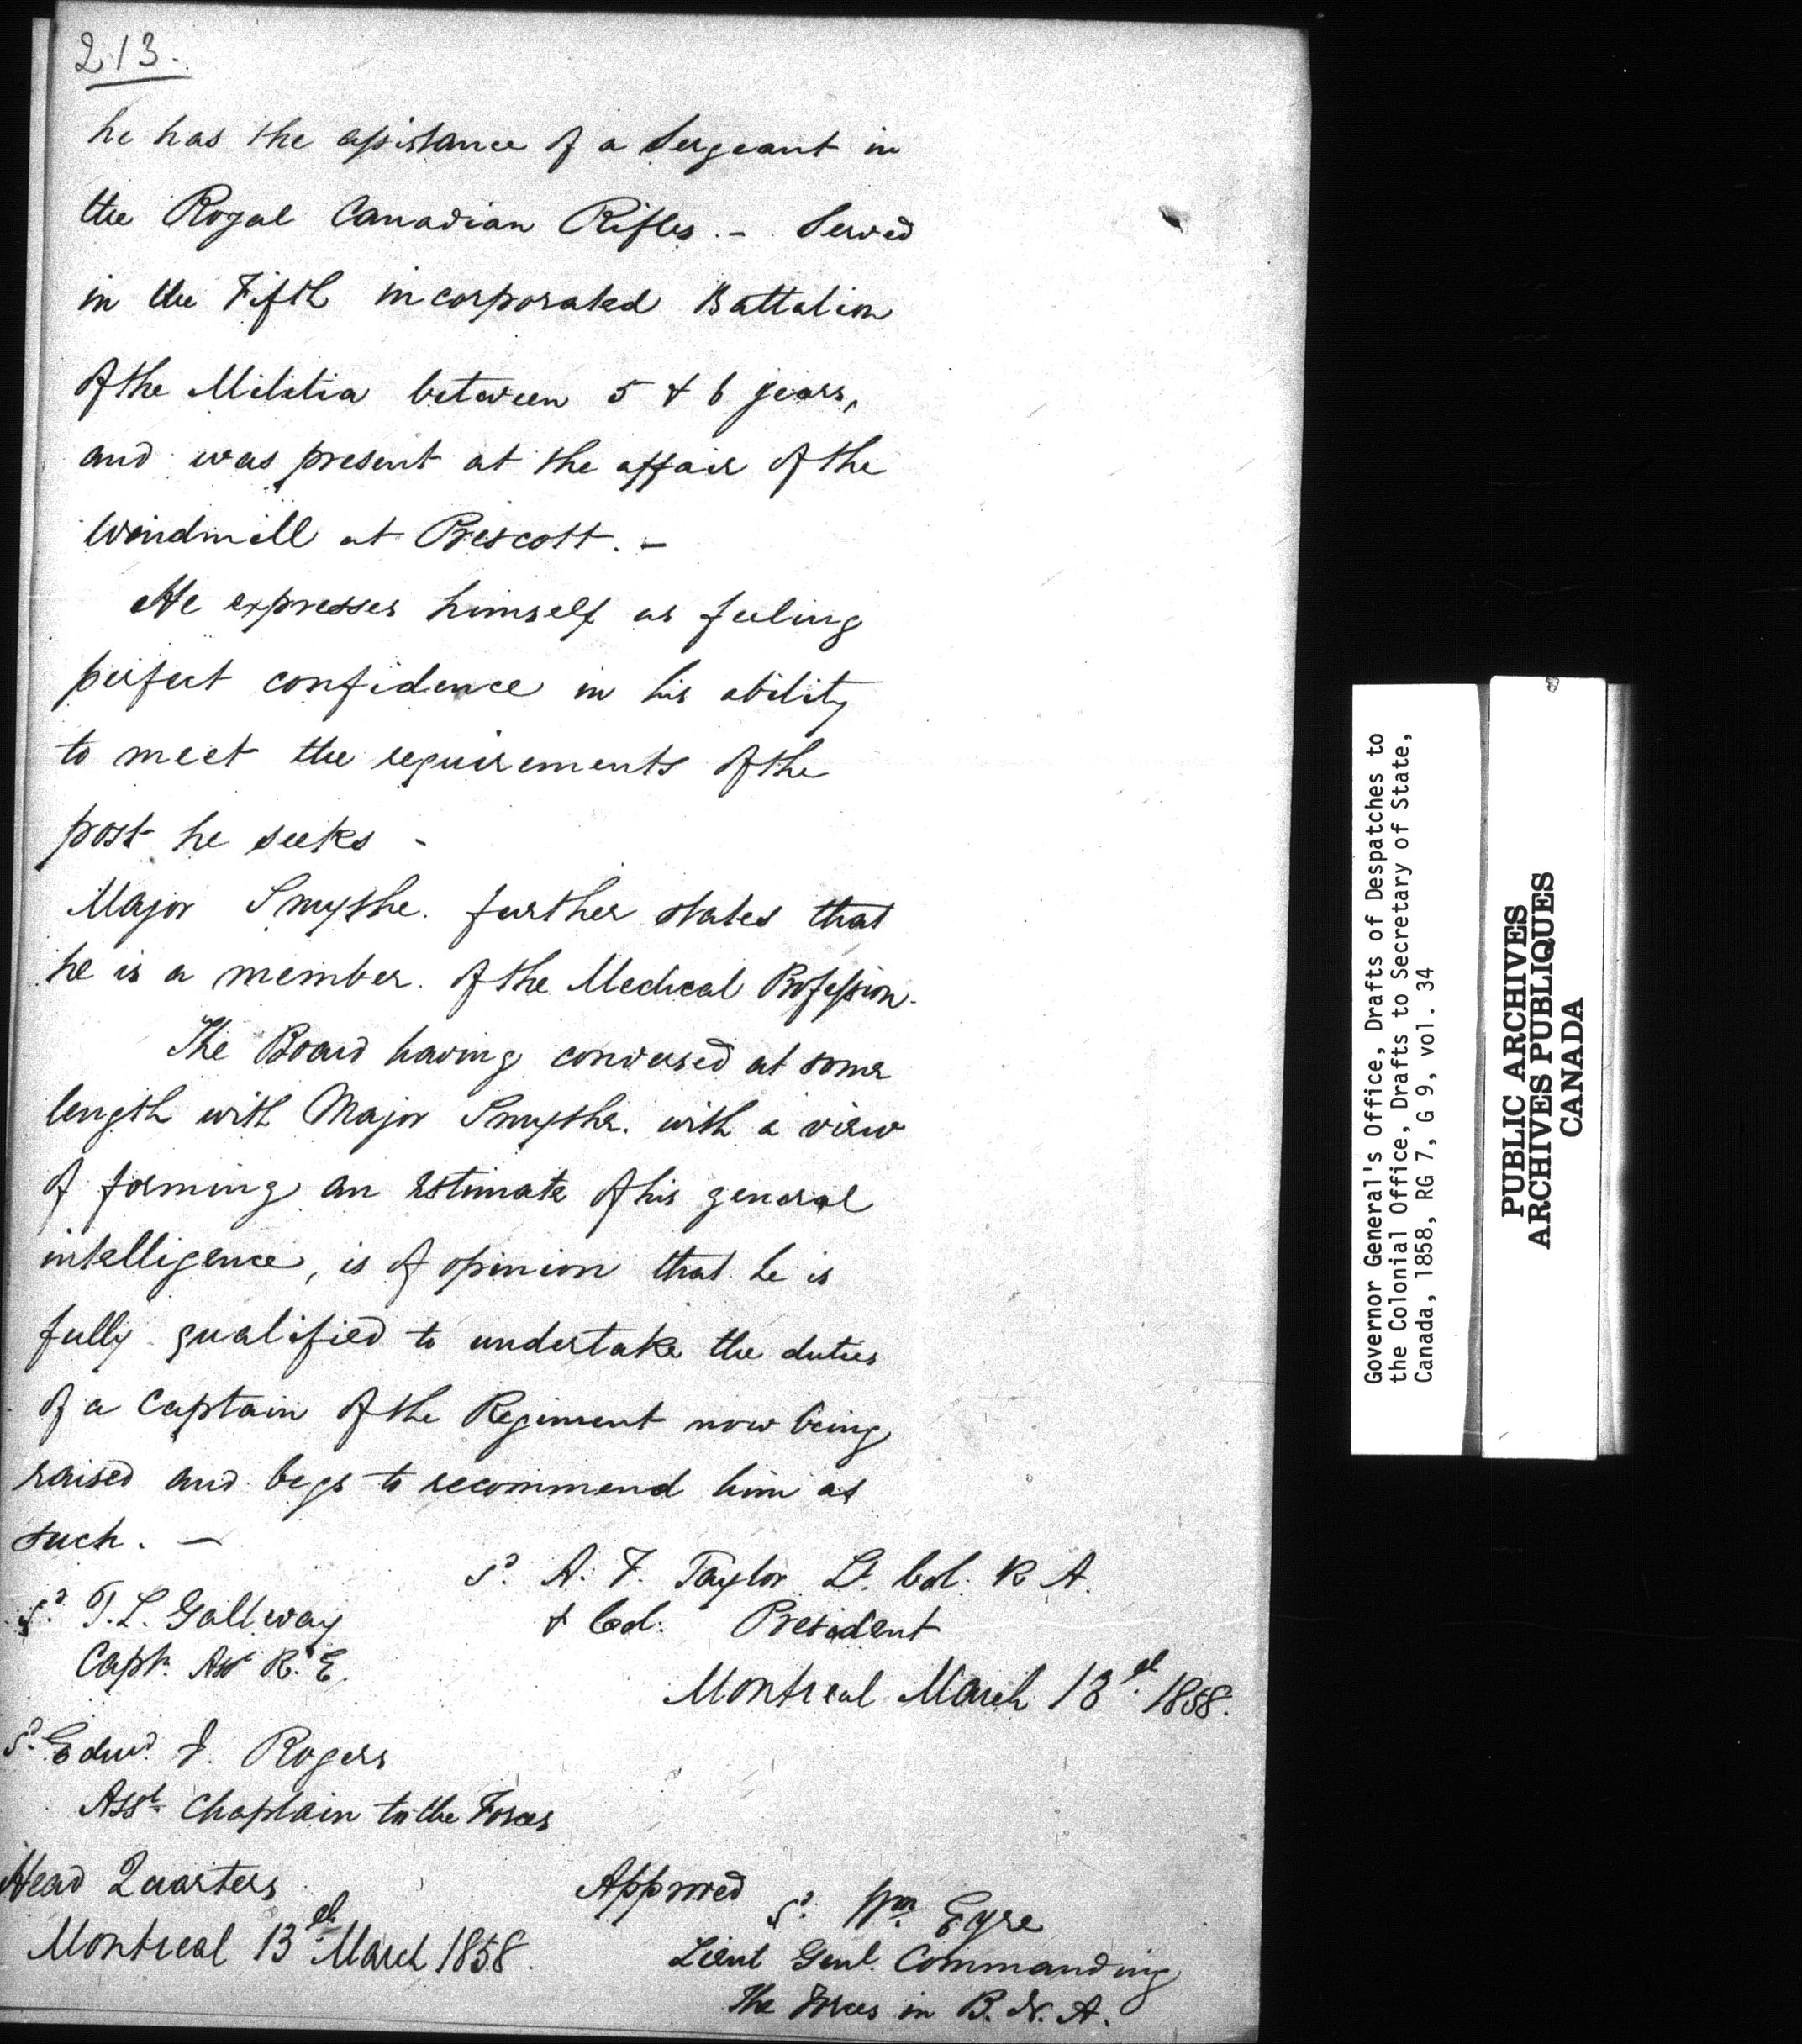 213.
he has the assistance of a Sergeant in
the Royal Canadian Rifles. - Served
in the Fifth incorporated Battalion
of the Militia between 5 & 6 years,
and was present at the affair of the
Windmill at Prescott. -
He expresses himself as feeling
perfect confidence in his ability
to meet the requirements of the
post he seeks -
Major Smythe. further states that
he is a member. of the Medical Profession.
The Board having conversed at some
length with Major Smythe. with a view
of forming an estimate of his general
intelligence, is of opinion that he is
fully qualified to undertake the duties
of a Captain of the Regiment now being
raised and begs to recommend him as
such. -
Sd. A. F. Taylor Lt. Col. R A.
& Col. President
Sd. T. L. Gallwey
Capt. Asst R. E.
Montreal March 13th. 1858.
Sd. Edwd. J. Rogers
Asst. Chaplain to the Forces
Head Quarters
Montreal 13th March 1858.
Approved Sd. Wm. Eyre
Lieut Genl. Commanding
The Forces in B. N. A.
Governor General's Office, Drafts of Despatches to
the Colonial Office, Drafts to Secretary of State,
Canada, 1858, RG 7, G 9, vol. 34
PUBLIC ARCHIVES
ARCHIVES PUBLIQUES
CANADA